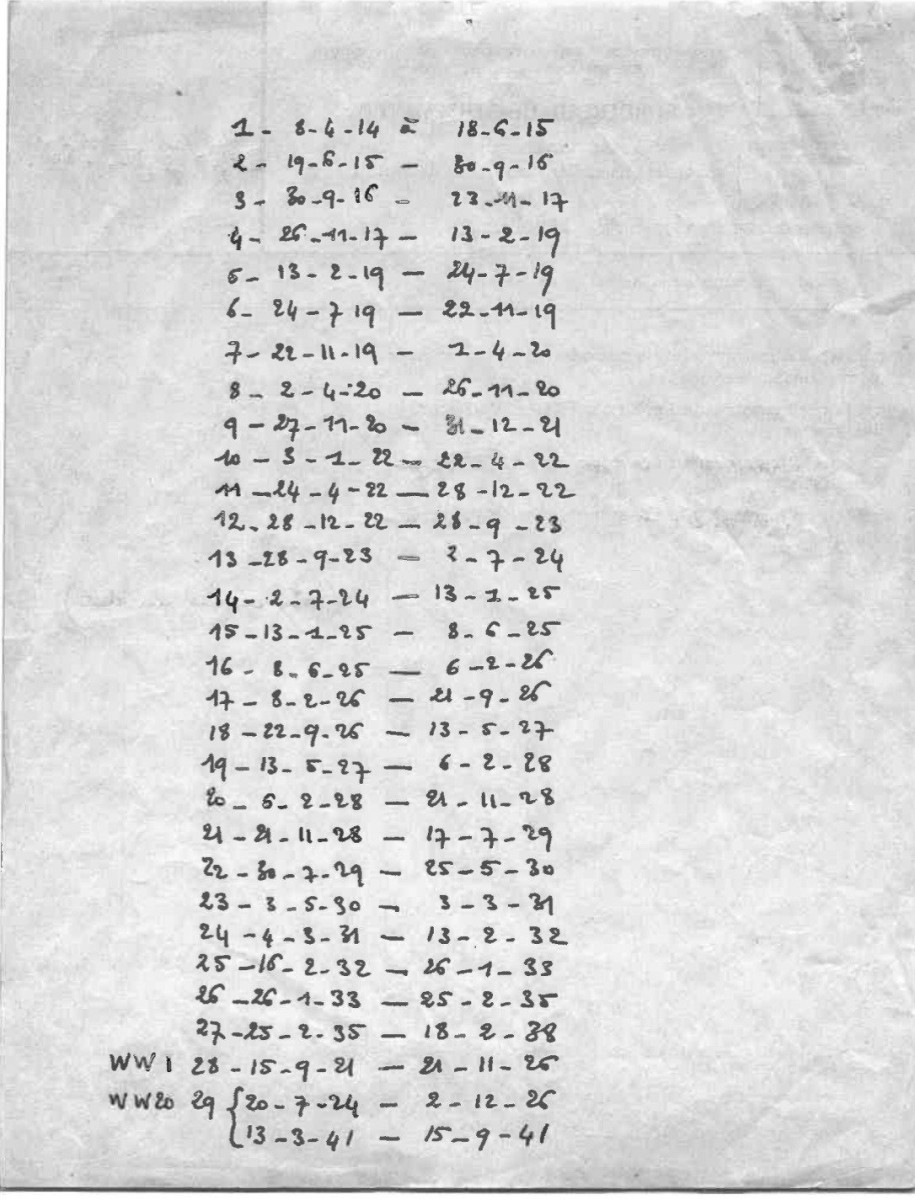 1 - 8-4-14 à 18-6-15
2 - 19-6-15 - 30-9-16
3 - 30-9-16 - 23-11-17
4 - 26-11-17 - 13-2-19
5 - 13-2-19 - 24-7-19
6 - 24-7 19 - 22-11-19
7 - 22-11-19 - 1-4-20
8 - 2-4-20 - 26-11-20
9 - 27-11-20 - 31-12-21
10 - 3-1-22 - 22-4-22
11 - 24-4-22 - 28-12-22
12 - 28-12-22 - 28-9-23
13 - 28-9-23 - 2-7-24
14 - 2-7-24 - 13-1-25
15 - 13-1-25 - 8-6-25
16 - 8-6-25 - 6-2-26
17 - 8-2-26 - 21-9-26
18 - 22-9-26 - 13-5-27
19 - 13-5-27 - 6-2-28
20 - 6-2-28 - 21-11-28
21 - 21-11-28 - 17-7-29
22 - 30-7-29 - 25-5-30
23 - 3-5-30 - 3-3-31
24 - 4-3-31 - 13-2-32
25 - 16-2-32 - 26-1-33
26 - 26-1-33 - 25-2-35
27 - 25-2-35 - 18-2-38
WW1 28 - 15-9-21 - 21-11-26
WW20 29 { 20-7-24 - 2-12-26
13-3-41 - 15-9-41